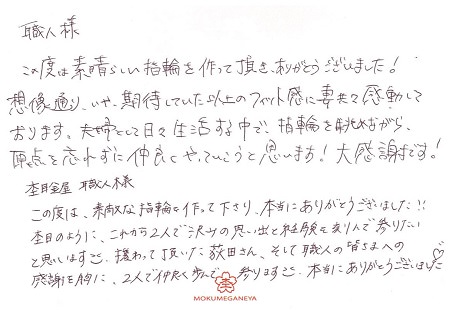 職人様
この度は素晴らしい指輪を作って頂き、ありがとうございました!
想像通り、いや、期待していた以上のフィット感に妻共々感動して
おります。夫婦として日々生活する中で、指輪を眺めながら、
原点を忘れずに仲良くやっていこうと思います!大感謝です!
杢目金屋 職人様
この度は、素敵な指輪を作って下さり、本当にありがとうございました!!
杢目のように、これから2人で沢山の思い出と経験を刻んで参りたい
と思います。携わって頂いた荻田さん、そして職人の皆さまへの
感謝を胸に、2人で仲良く歩んで参ります。本当にありがとうございました♡
MOKUMEGANEYA